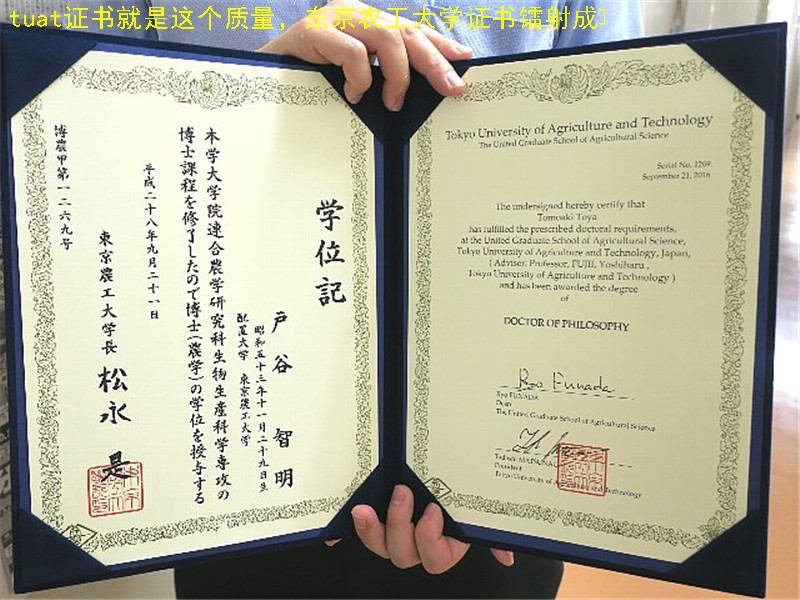 tuat证书就是这个质量，东京农工大学证书镭射成
学位記
戸谷 智明
昭和五十三年十一月二十九日生
配置大学 東京農工大学
本学大学院連合農学研究科生物生産科学専攻の
博士課程を修了したので博士(農学)の学位を授与する
平成二十八年九月二十一日
東京農工大学長 松永 是
博農甲第一二六九号
Tokyo University of Agriculture and Technology
The United Graduate School of Agricultural Science
Serial No. 1269
September 21, 2016
The undersigned hereby certify that
Tomoaki Toya
has fulfilled the prescribed doctoral requirements,
at the United Graduate School of Agricultural Science,
Tokyo University of Agriculture and Technology, Japan,
( Adviser: Professor, FUJII, Yoshiharu ,
Tokyo University of Agriculture and Technology )
and has been awarded the degree
of
DOCTOR OF PHILOSOPHY
Ryo Funada
Ryo FUNADA
Dean
The United Graduate School of Agricultural Science
President
Tokyo University of Agriculture and Technology